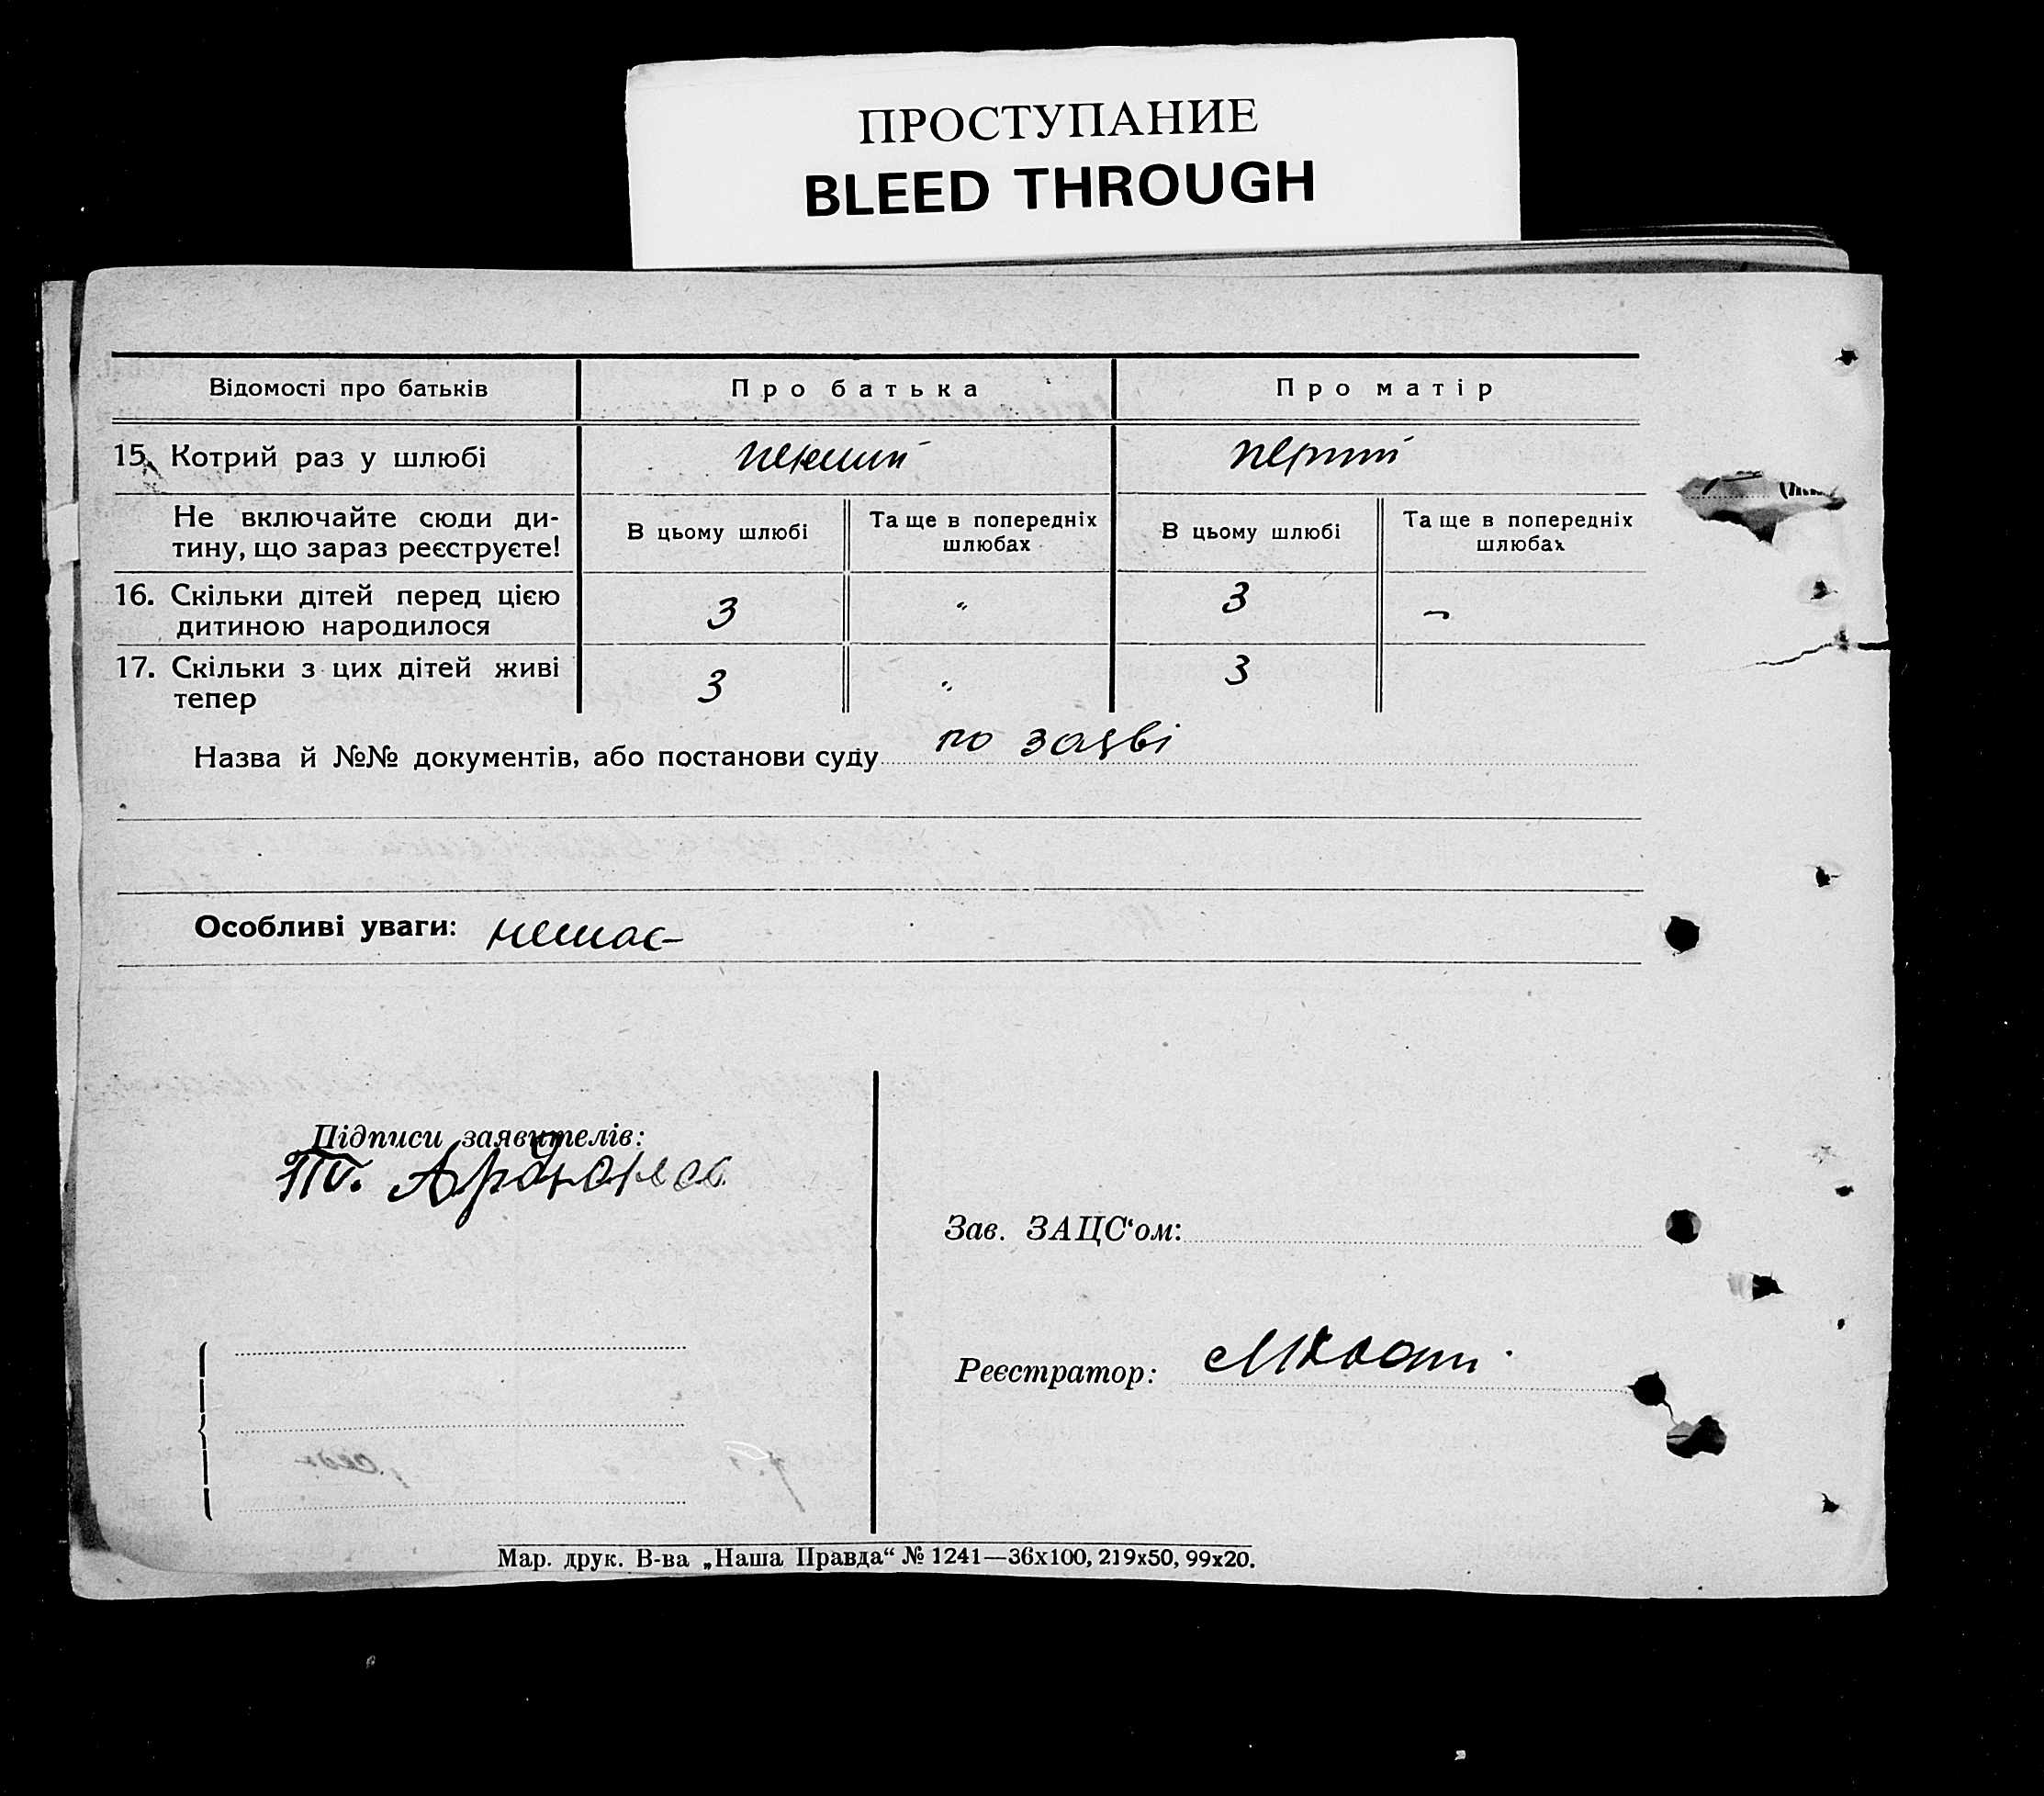 ПРОСТУПАНИЕ
BLEED THROUGH
Відомості про батьків
Про батька
Про матір
15. Котрий раз у шлюбі
перший
перший
Не включайте сюди ди-
тину, що зараз реєструєте!
В цьому шлюбі
Та ще в попередніх
шлюбах
В цьому шлюбі
Та ще в попередніх
шлюбах
16. Скільки дітей перед цією
дитиною народилося
3
"
3
-
17. Скільки з цих дітей живі
тепер
3
"
3
Назва й №№ документів, або постанови суду по заяві
Особливі уваги: немає
Підписи заявителів:
Зав. ЗАЦС‘ом:
Реєстратор:
Мар. друк. В-ва „Наша Правда“ № 1241—36x100, 219x50, 99x20.